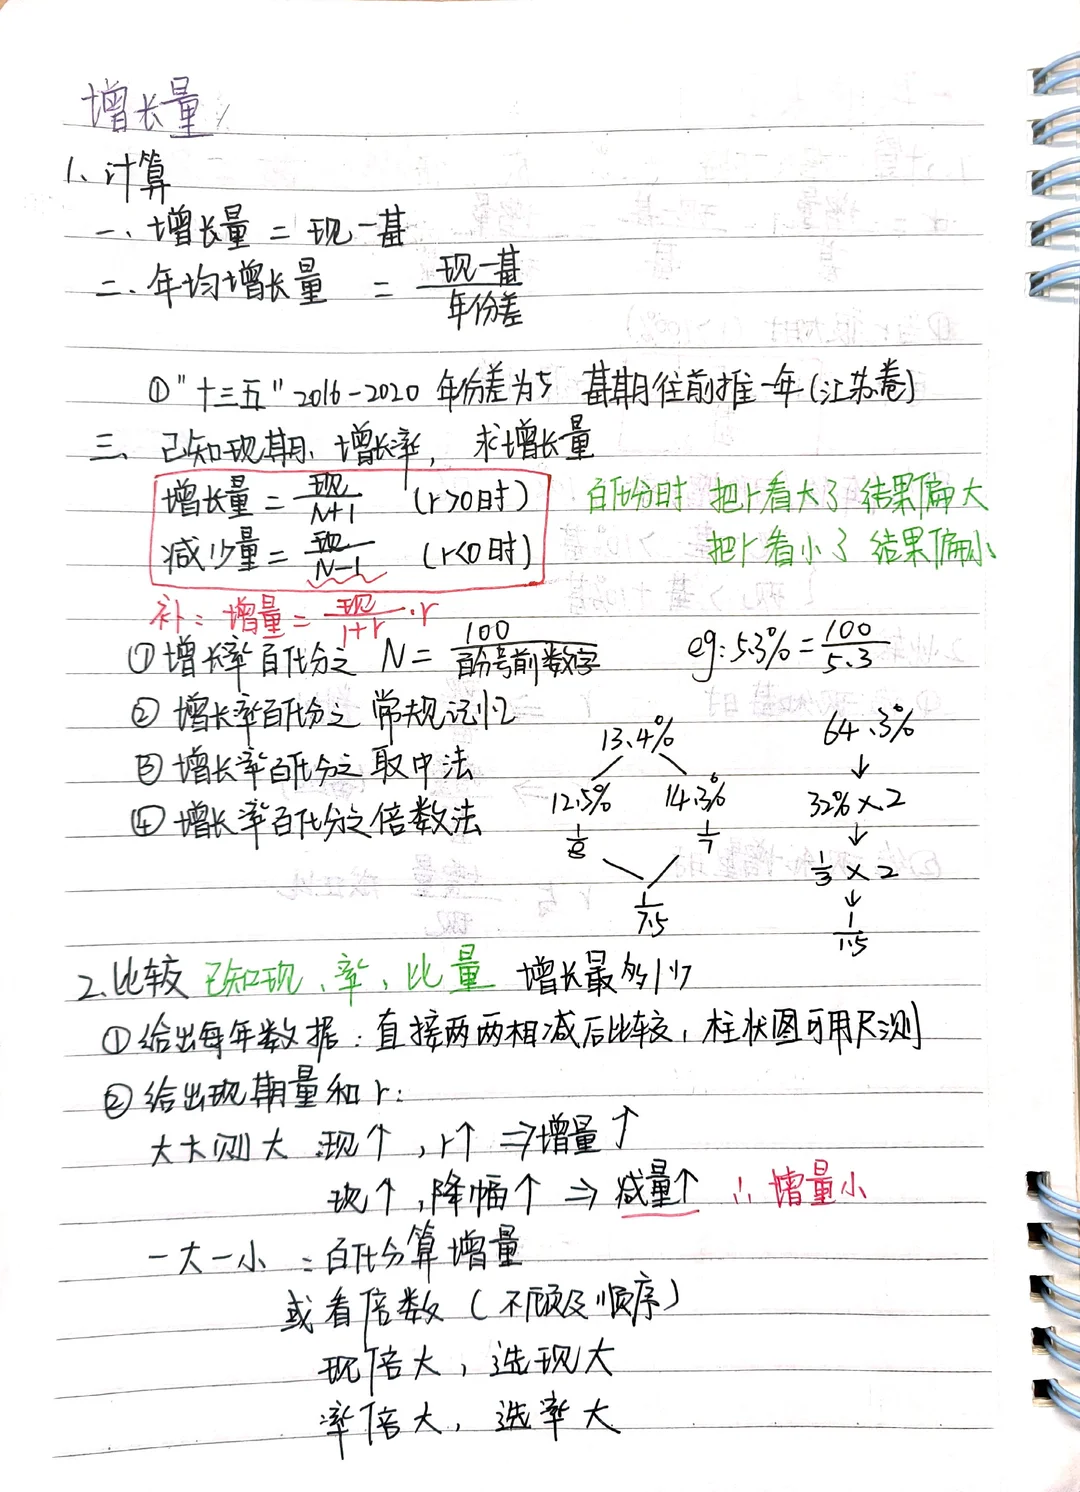 增长量
1、计算
一、增长量 = 现-基
二、年均增长量 = 现-基/年份差
①"十三五"2016-2020 年份差为5 基期往前推一年(江苏卷)
三、已知现期、增长率,求增长量
增长量 = 现/N+1 (r>0时) 百化分时 把r看大了 结果偏大
减少量 = 现/N-1 (r<0时) 把r看小了 结果偏小
补:增量 = 现/1+r · r
①增长率百化分之 N = 100/百分号前数字 eg:5.3% = 100/5.3
②增长率百化分之 常规记忆
③增长率百化分之 取中法
④增长率百化分之倍数法
13.4%
12.5% 14.3%
1/8 1/7
1/7.5
64.3%
↓
32%×2
↓
1/3×2
↓
1/1.5
2.比较 已知现、率,比量 增长最多/少
①给出每年数据:直接两两相减后比较,柱状图可用尺测
②给出现期量和r:
大大则大 :现↑,r↑ ⇒增量↑
现↑,降幅↑ ⇒ 减量↑ ∴增量小
一大一小 :百化分算增量
或看倍数(不顾及顺序)
现倍大,选现大
率倍大,选率大